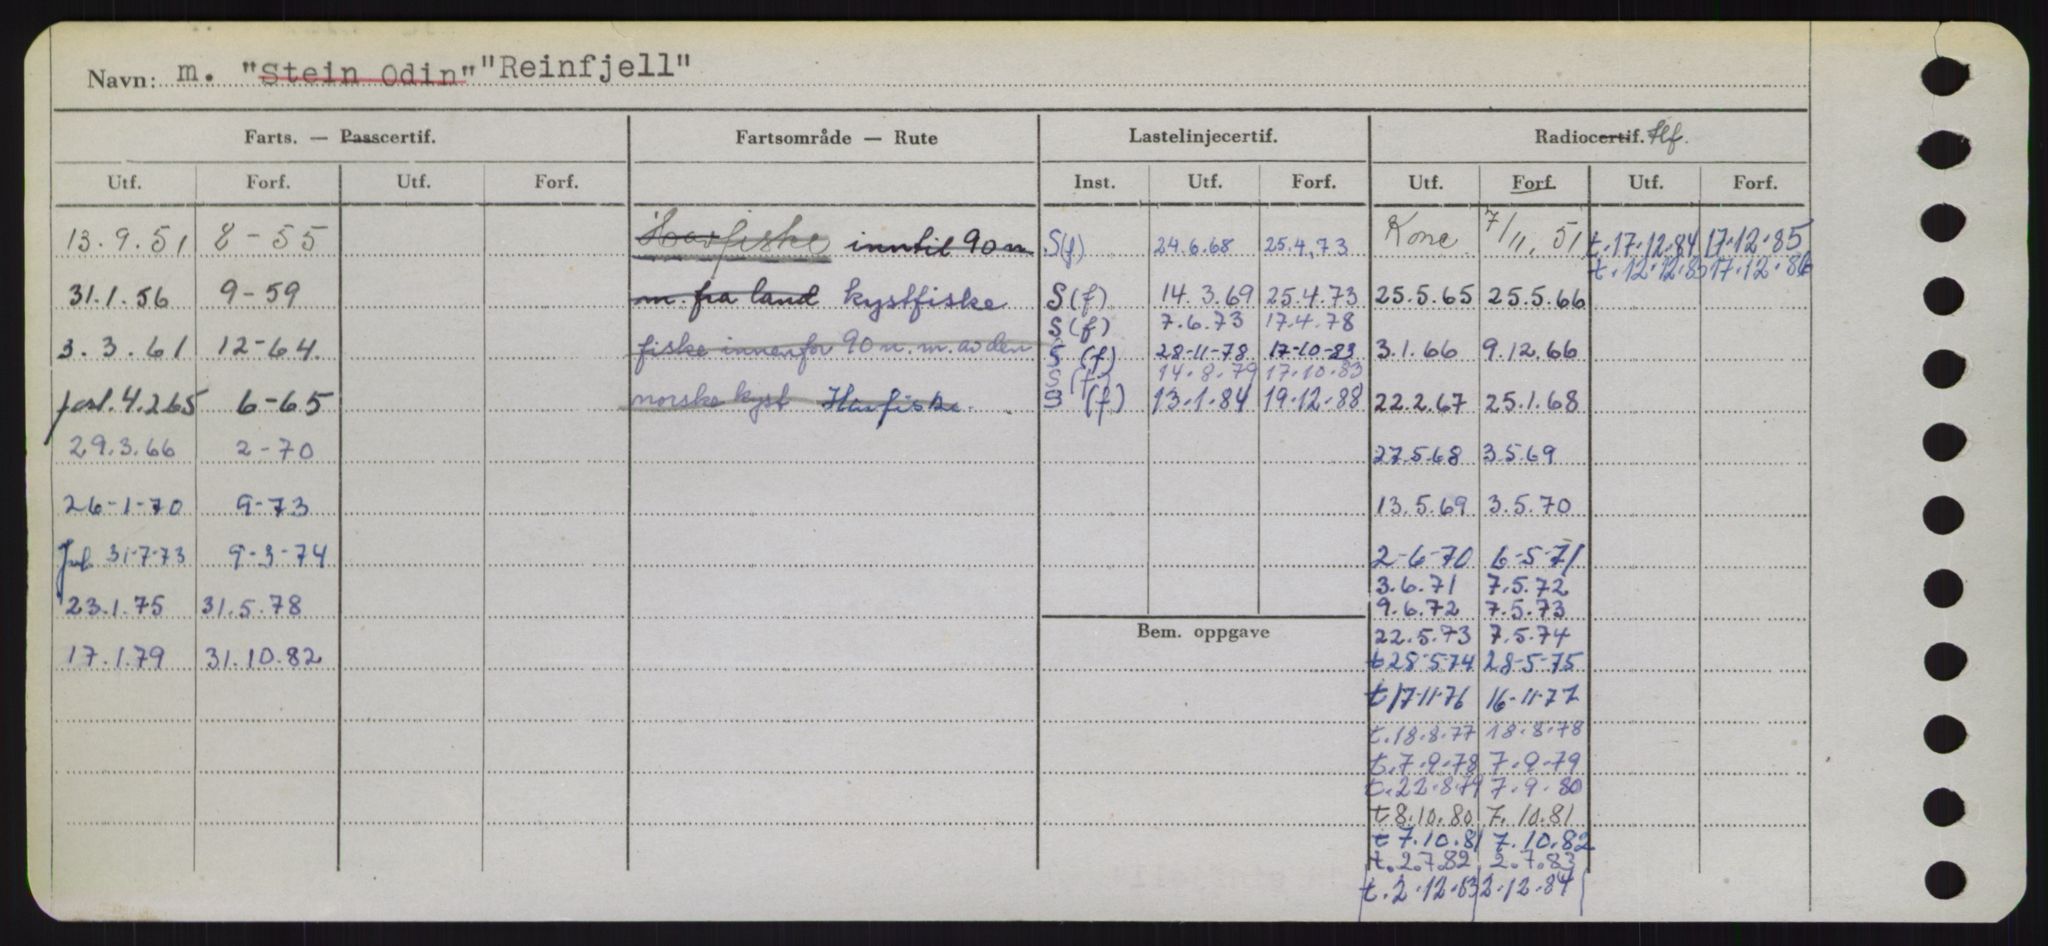 Navn: m. "Stein Odin" "Reinfjell"
Farts. — Passcertif. Fartsområde — Rute Lastelinjecertif. Radiocertif. tlf.
Utf. Forf. Utf. Forf. Inst. Utf. Forf. Utf. Forf. Utf. Forf.
13.9.51 8-55 Havfiske inntil 90 m S(f) 24.6.68 25.4.73 Konc. 7/11.51 t.17.12.84 17.12.85
t.12.12.85 17.12.86
31.1.56 9-59 m. fra land kystfiske S(f) 14.3.69 25.4.73 25.5.65 25.5.66
S(f) 7.6.73 17.4.78
3.3.61 12-64. fiske innenfor 90 n.m. av den S(f) 28-11-78 17-10-83 3.1.66 9.12.66
S(f) 14.8.79 17.10.83
forl. 4.2.65 6-65 norske kyst Havfiske. S(f) 13.1.84 19.12.88 22.2.67 25.1.68
29.3.66 2-70 27.5.68 3.5.69
26-1-70 9-73 13.5.69 3.5.70
31-7-73 9-3-74 2-6-70 6-5-71
3.6.71 7.5.72
23.1.75 31.5.78 9.6.72 7.5.73
Bem. oppgave 22.5.73 7.5.74
17.1.79 31.10.82 t 28-5-74 28-5-75
t 17-11-76 16-11-77
t.18.8.77 18.8.78
t.7.9.78 7.9.79
t.22.8.79 7.9.80
t 8.10.80 7.10.81
t 7.10.81 7.10.82
t.2.7.82 2.7.83
t.2.12.83 2.12.84